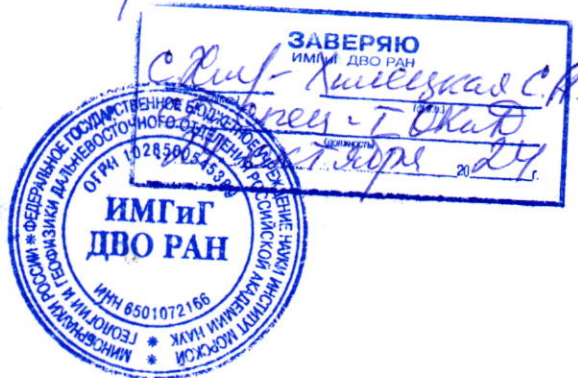 ЗАВЕРЯЮ
ИМГиГ ДВО РАН
Хмелецкая С.
(Ф.И.О.)
ОКиД
(должность)
20 24 г.
МИНОБРНАУКИ РОССИИ * ФЕДЕРАЛЬНОЕ ГОСУДАРСТВЕННОЕ БЮДЖЕТНОЕ УЧРЕЖДЕНИЕ НАУКИ ИНСТИТУТ МОРСКОЙ
ГЕОЛОГИИ И ГЕОФИЗИКИ ДАЛЬНЕВОСТОЧНОГО ОТДЕЛЕНИЯ РОССИЙСКОЙ АКАДЕМИИ НАУК *
ОГРН
ИМГиГ
ДВО РАН
ИНН 6501072166